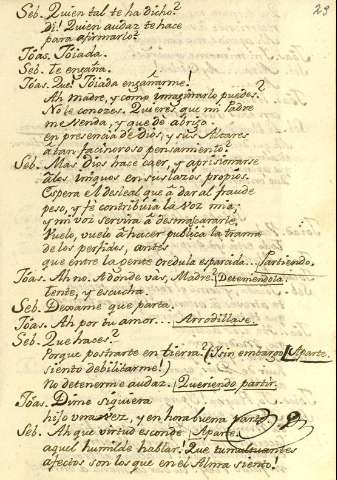 23
Seb. Quien tal te ha dicho?
Di! Quien audaz te hace
para afirmarlo?
Jóas. Jóiada.
Seb. Te engaña.
Jóas. Que! Jóiada engañarme!
Ah Madre, y como imaginarlo puedes?
No le conozes. Quieres que un Padre
me venda, y que dè abrigo
en presencia de Dios, y sus Altares
à tan facineroso pensamiento?
Seb. Mas Dios hace caer, y aprisionarse
à los iniquos en sus lazos propios.
Espera el desleal que à dar al fraude
peso, y fè contribuia la voz mia;
y mi voz servirà à desmascararle.
Vuelo, vuelo à hacer publica la trama
de los perfidos, antes
que entre la gente credula esparada... Partiendo.
Jóas. Ah no. Adonde vàs, Madre? Deteniendola.
Tente, y escucha.
Seb. Dexame que parta.
Jóas. Ah por tu amor... Arrodillase.
Seb. Que haces?
Porque postrarte en tierra? (Y sin embargo Aparte.
siento debilitarme!)
No detenerme audaz. Queriendo partir.
Jóas. Dime siquiera
hijo una vez, y en hora buena parte.
Seb. Ah que virtud esconde Aparte.
aquel humilde hablar! Que tumultuantes
afectos son los que en el Alma siento!